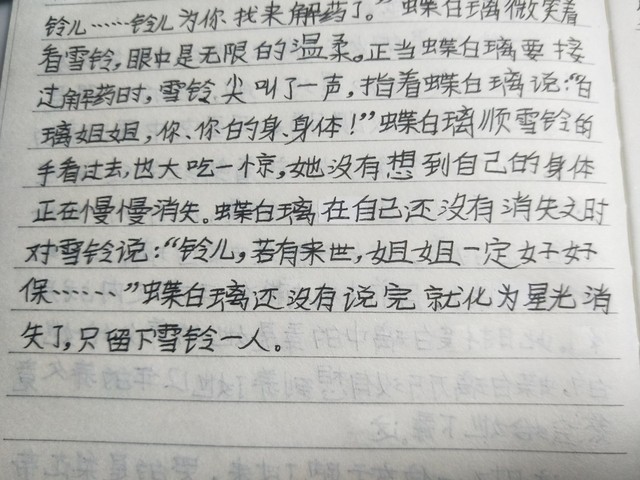 铃儿……铃儿为你找来解药了。”蝶白璃微笑着
看雪铃,眼中是无限的温柔。正当蝶白璃要接
过解药时,雪铃尖叫了一声,指着蝶白璃说:“白
璃姐姐,你、你的身、身体!”蝶白璃顺雪铃的
手看过去,也大吃一惊,她没有想到自己的身体
正在慢慢消失。蝶白璃在自己还没有消失之时
对雪铃说:“铃儿,若有来世,姐姐一定好好
保……”蝶白璃还没有说完就化为星光消
失了,只留下雪铃一人。